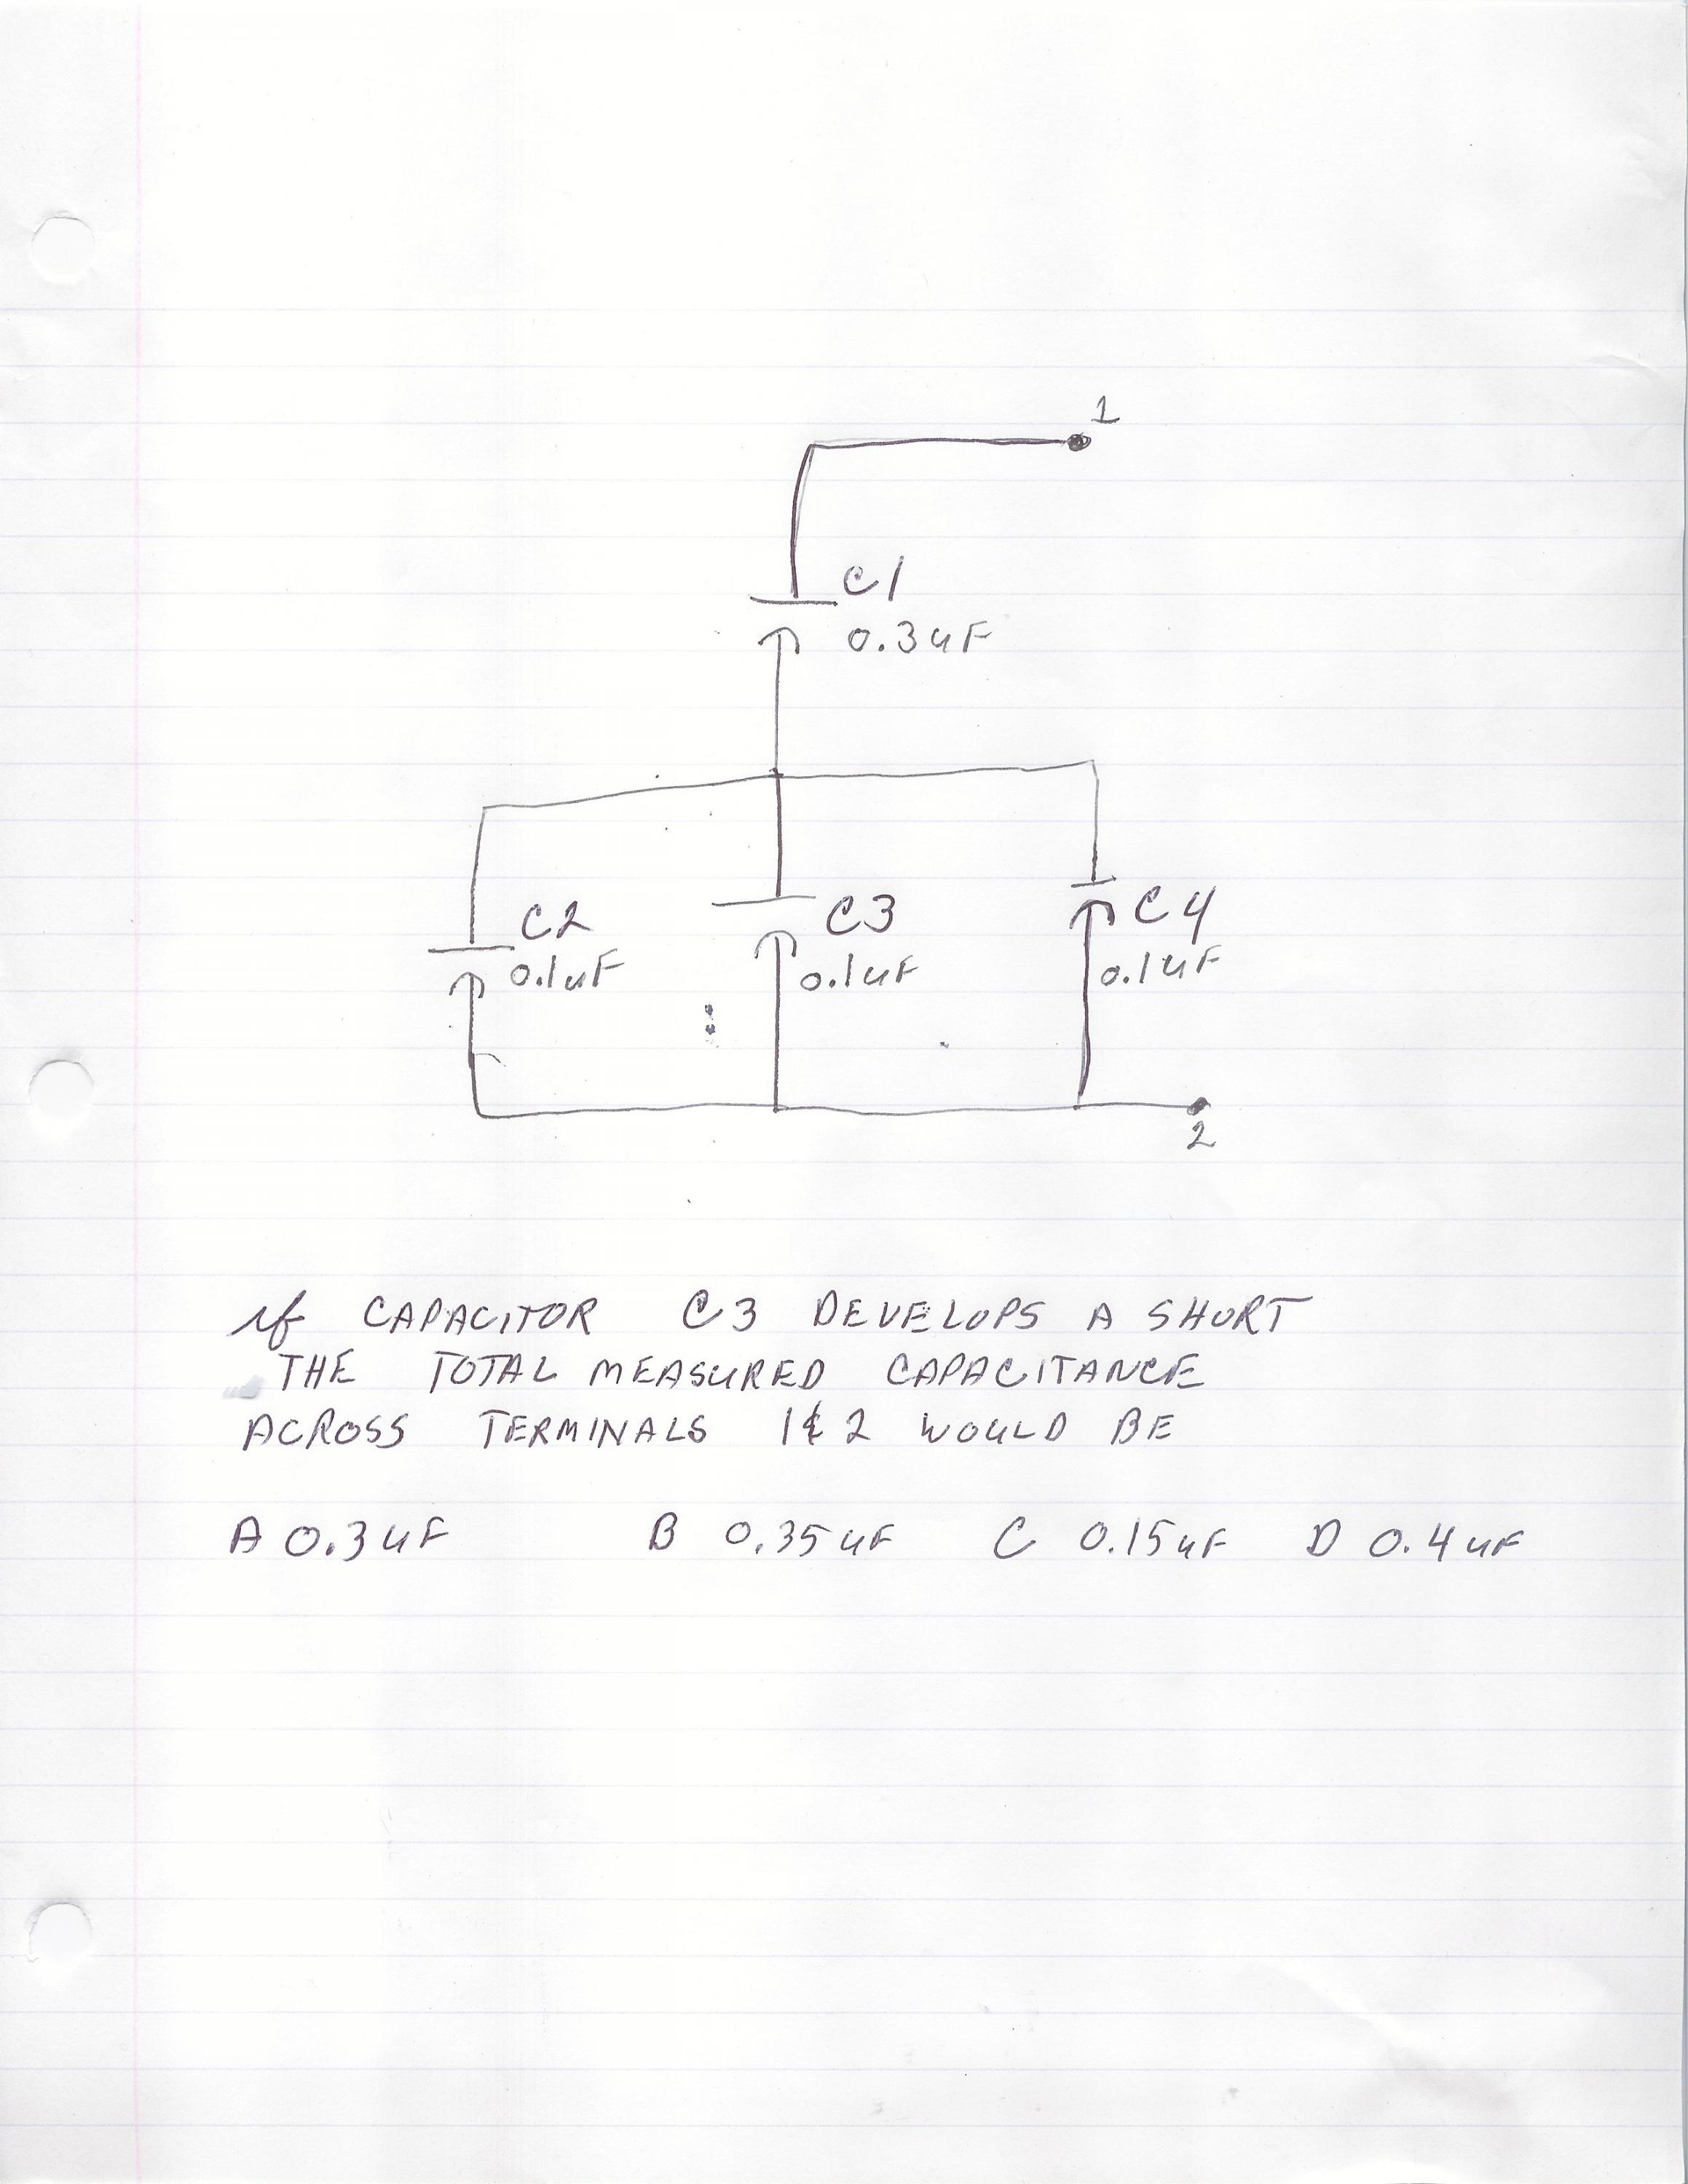 1
C1
0.3uF
C2
0.1uF
C3
0.1uF
C4
0.1uF
2
if CAPACITOR C3 DEVELOPS A SHORT
THE TOTAL MEASURED CAPACITANCE
ACROSS TERMINALS 1&2 WOULD BE
A 0.3uF B 0.35uF C 0.15uF D 0.4uF